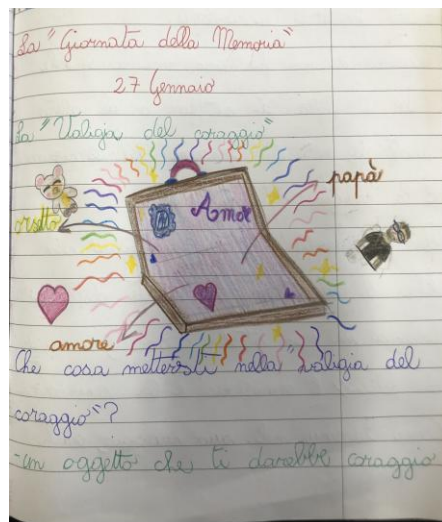 La "Giornata della Memoria"
27 Gennaio
La "Valigia del coraggio"
papà
Amore
orsetto
amore
Che cosa metteresti nella "valigia del
coraggio"?
-un oggetto che ti darebbe coraggio